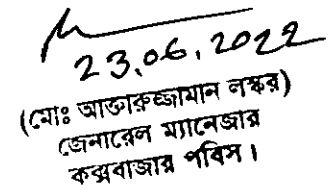 23.06.2022
(মোঃ আক্তারুজ্জামান লস্কর)
জেনারেল ম্যানেজার
কক্সবাজার পবিস।